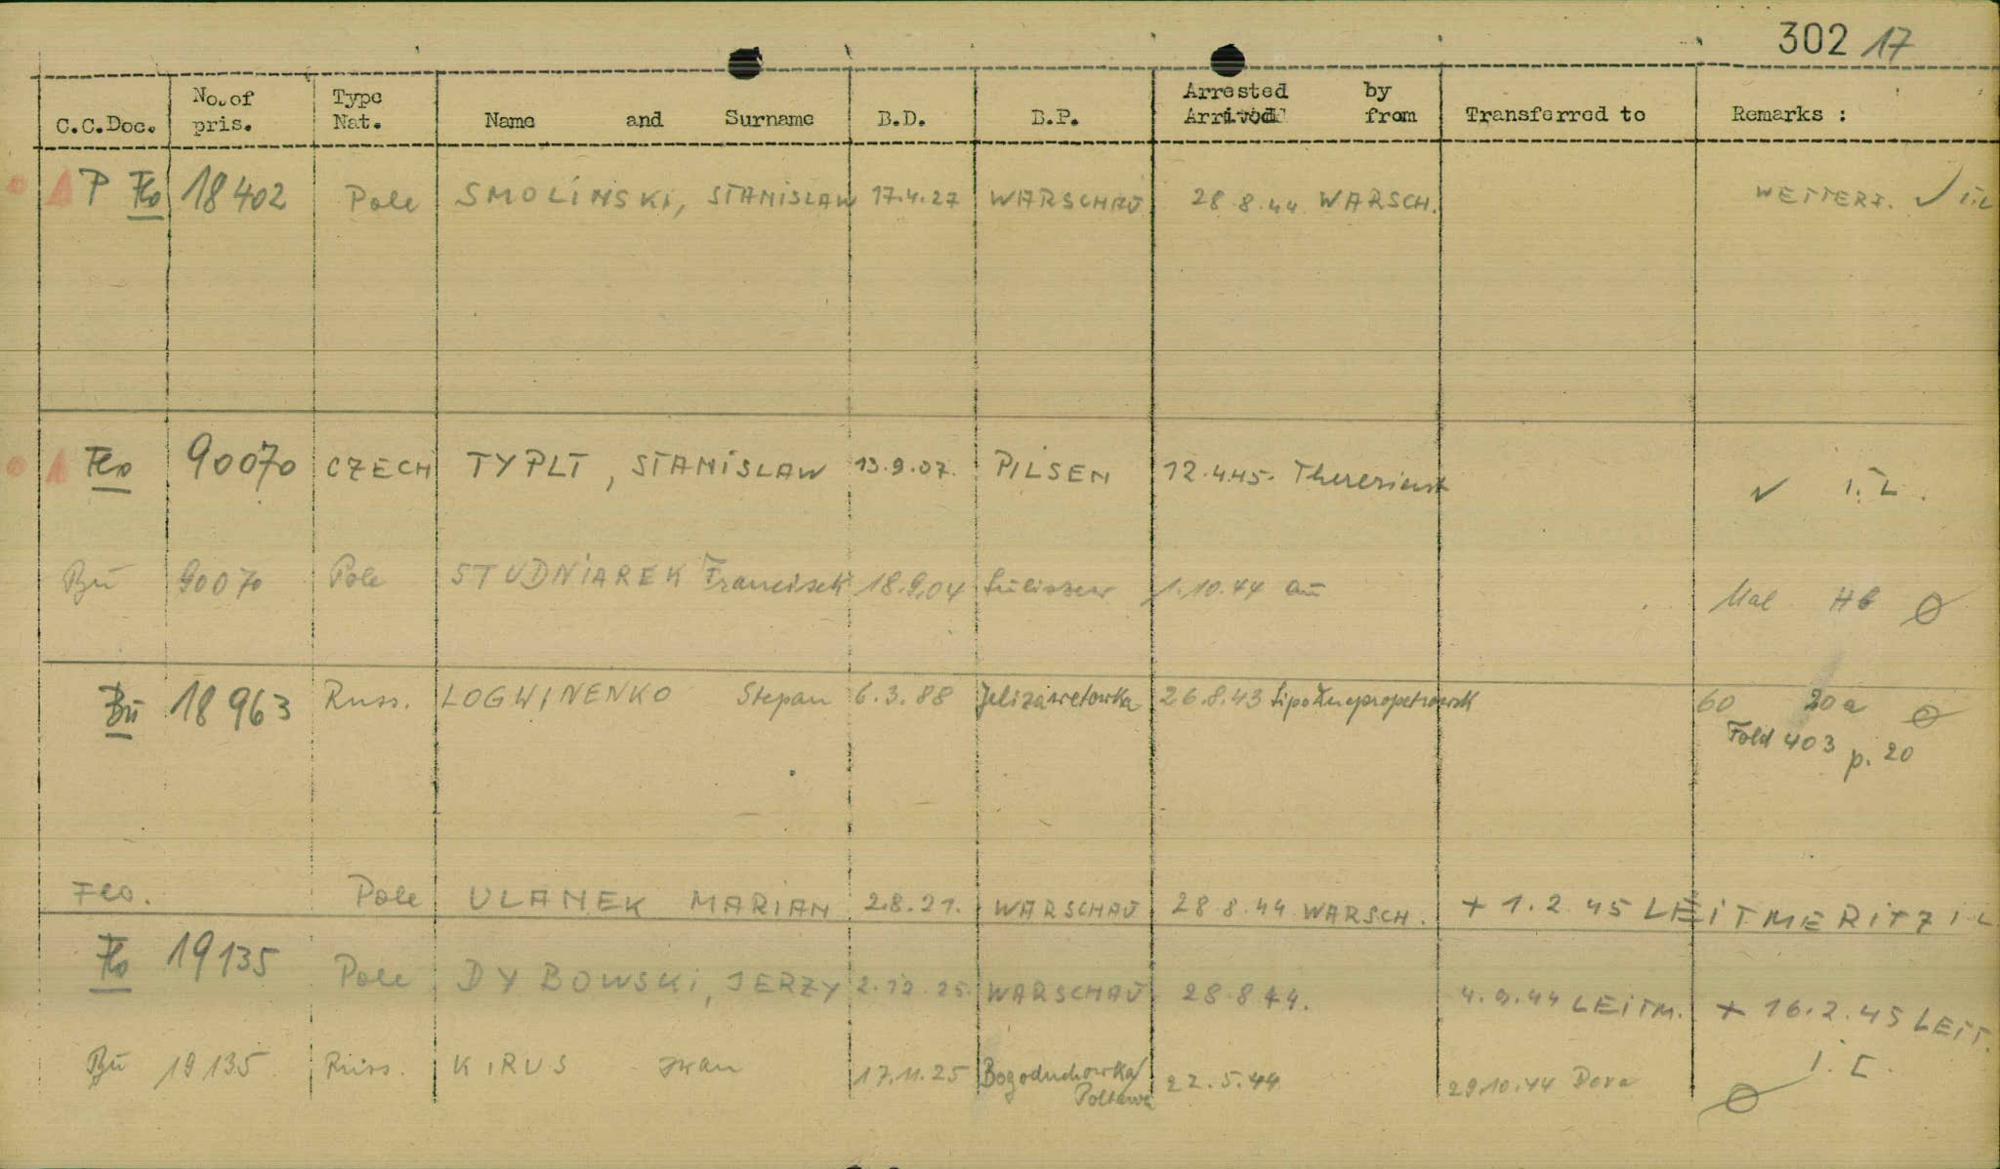 302 17
C.C.Doc. No.of pris. Type Nat. Name and Surname B.D. B.P. Arrested by Arrived from Transferred to Remarks :
P Flo 18402 Pole SMOLINSKI, STANISLAW 17.4.27 WARSCHAU 28 8.44 WARSCH. ✓ I.L
Flo 90070 CZECH TYPLT, STANISLAW 13.9.07. PILSEN 12.4.45. ✓ I.L.
Bu 90070 Pole STUDNIAREK Francisek 18.9.04 1.10.44 Au Ø
Bu 18963 Russ. LOGWINENKO Stepan 6.3.88 Jelisawetowka 26.8.43 60 20a Ø
Fold 403 p. 20
Flo. Pole ULANEK MARIAN 2.8.21. WARSCHAU 28 8.44 WARSCH. + 1.2.45 LEITMERITZ I L
Flo 19135 Pole DYBOWSKI, JERZY 2.12.25. WARSCHAU 28.8.44. 4.9.44 LEITM. + 16.2.45 LEIT.
I.L.
Bu 19135 Russ. KIRUS Iwan 17.11.25 Bogoduchowka/ 22.5.44 29.10.44 Dora Ø
Poltawa